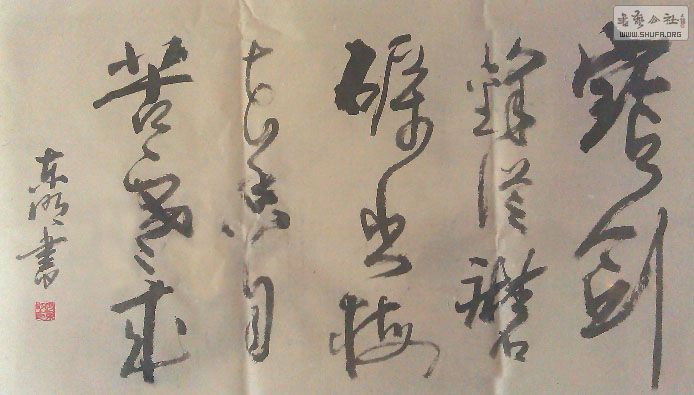 宝剑
锋从磨
砺出梅
花香自
苦寒来
东明书
书艺公社
WWW.SHUFA.ORG